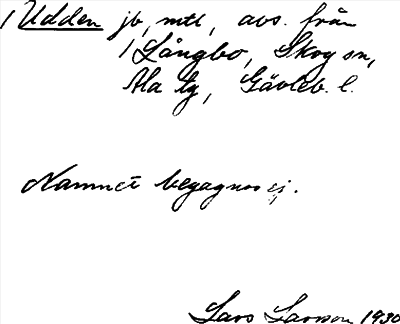 1 Udden jb, mtl, avs. från
1 Långbo, Skog sn,
Ala tg, Gävleb. l.
Namnet begagnas ej.
Lars Larsson 1930